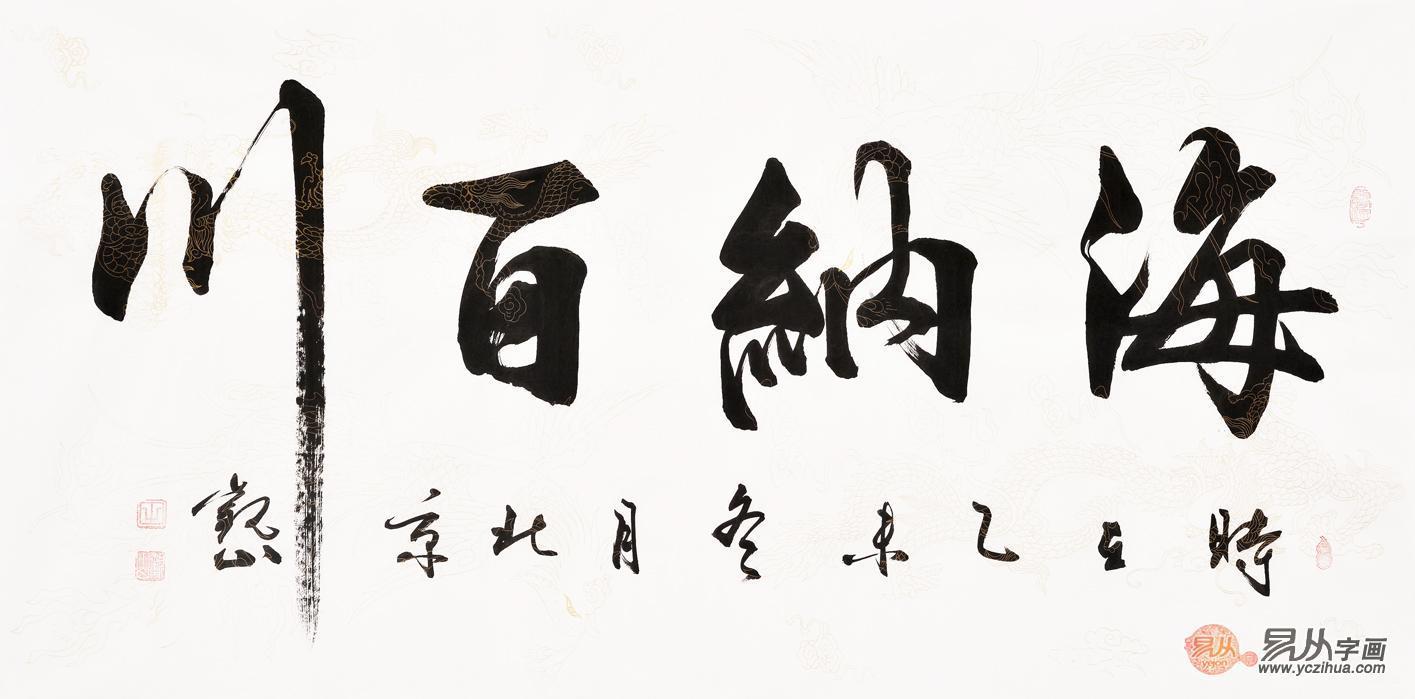 海納百川
時在乙未冬月北京觀山
易从字画
yejon
www.yczihua.com